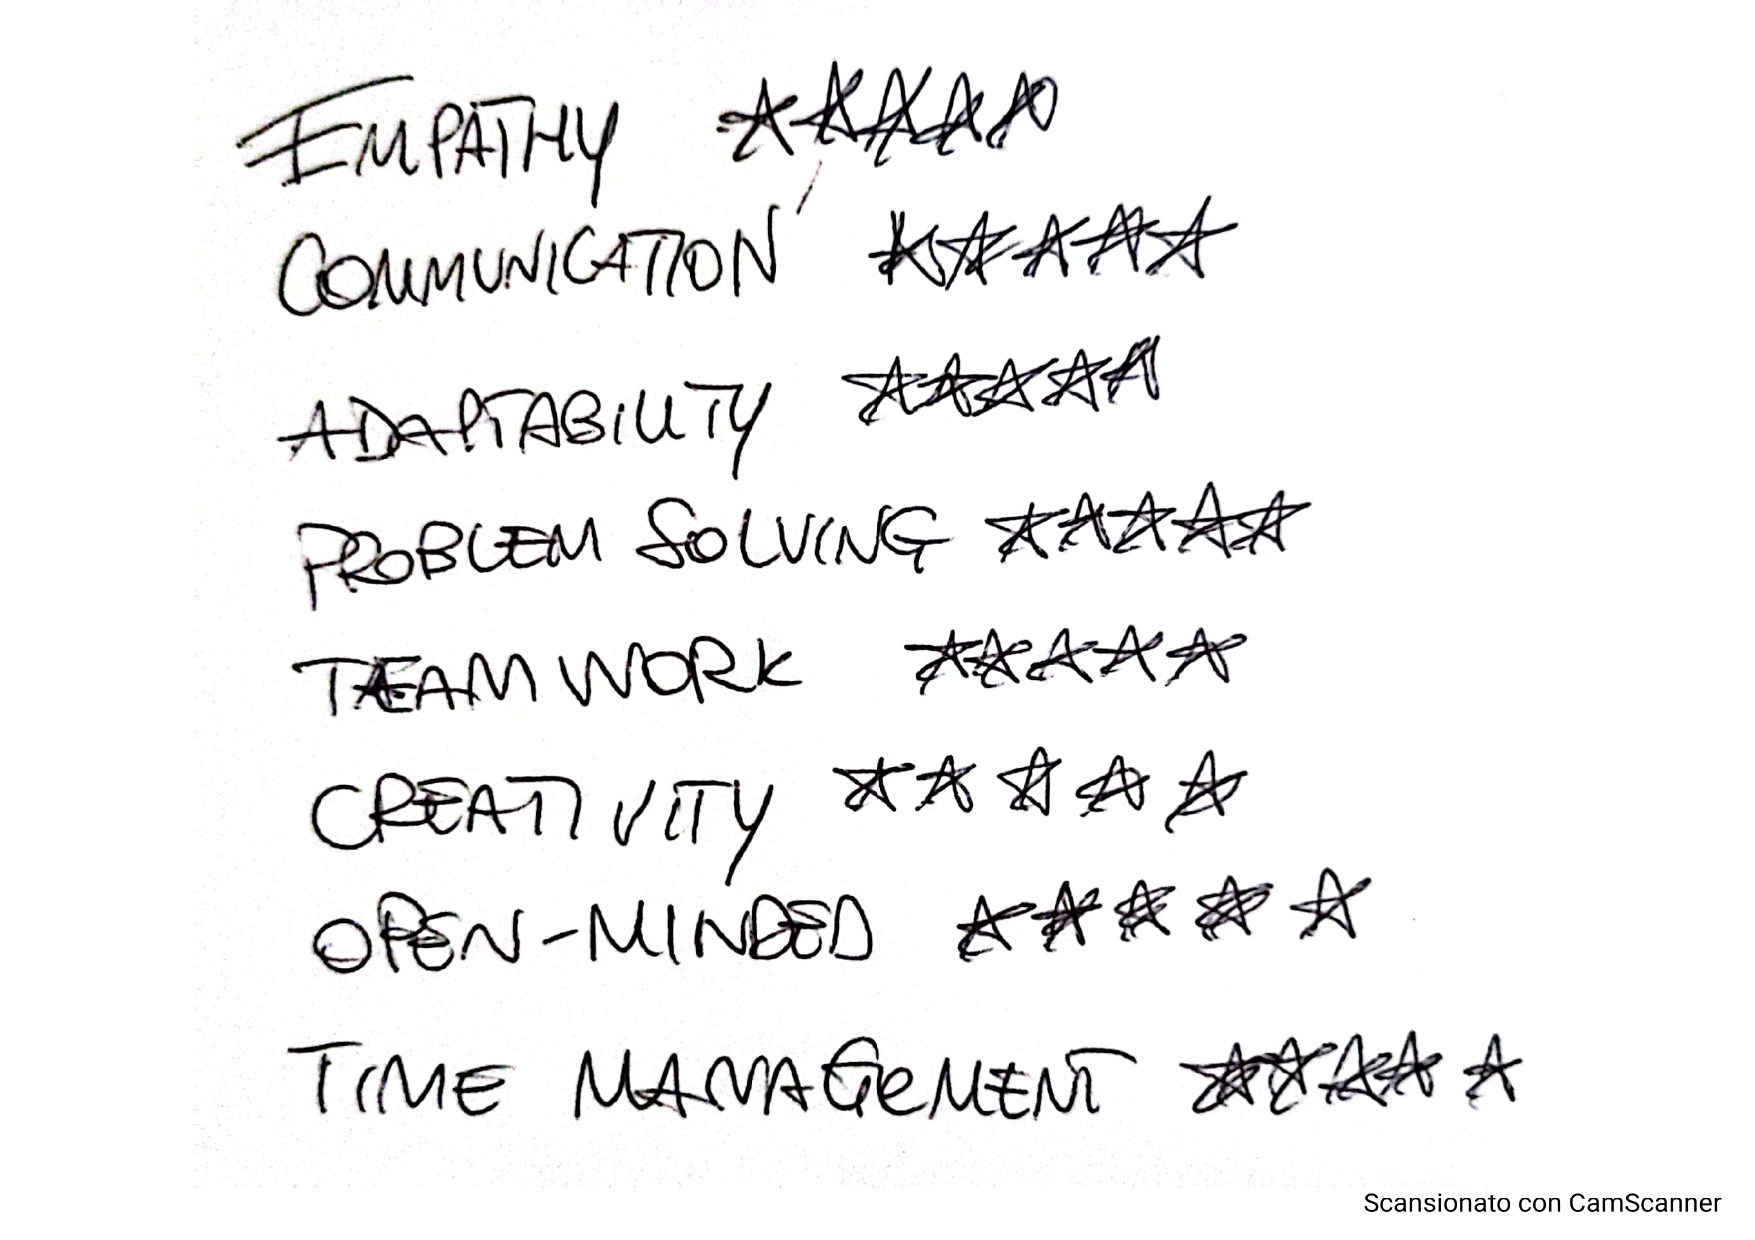 EMPATHY ☆☆☆☆☆
COMMUNICATION ☆☆☆☆☆
ADAPTABILITY ☆☆☆☆☆
PROBLEM SOLVING ☆☆☆☆☆
TEAM WORK ☆☆☆☆☆
CREATIVITY ☆☆☆☆☆
OPEN-MINDED ☆☆☆☆☆
TIME MANAGEMENT ☆☆☆☆☆
Scansionato con CamScanner